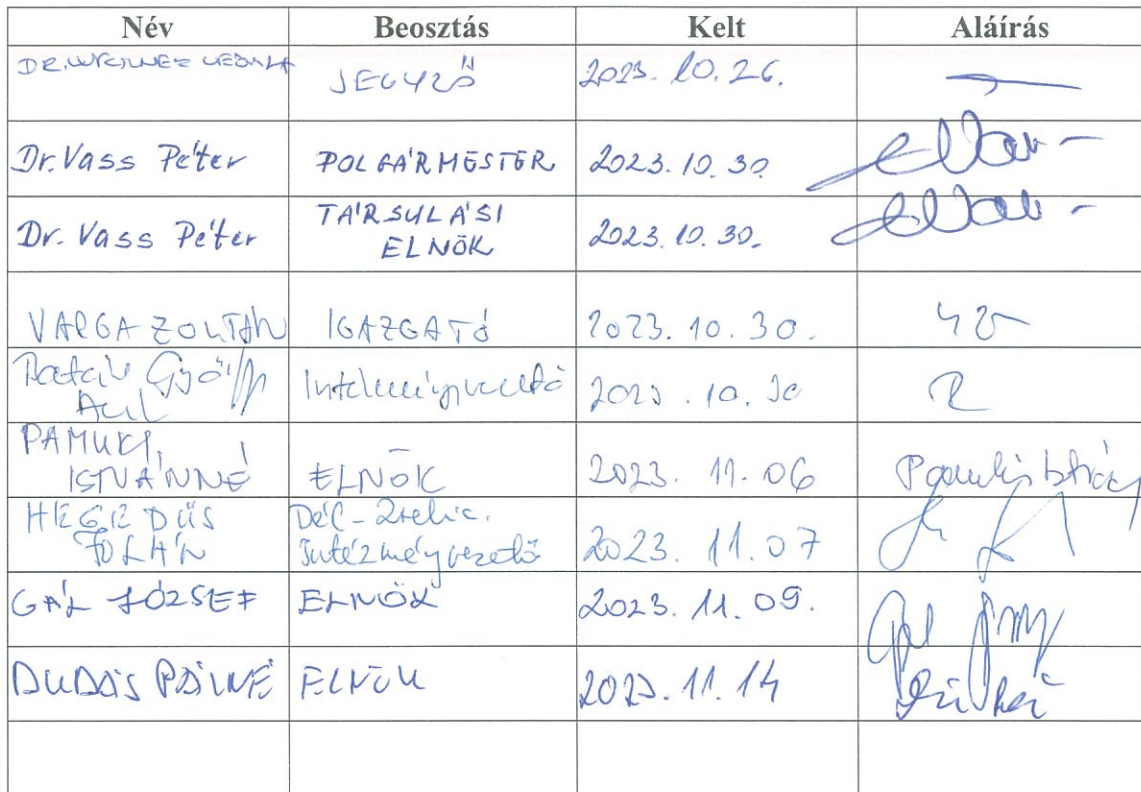 Név Beosztás Kelt Aláírás
DR. JEGYZŐ 2023. 10. 26.
Dr. Vass Péter POLGÁRMESTER 2023. 10. 30.
Dr. Vass Péter TÁRSULÁSI ELNÖK 2023. 10. 30.
VARGA ZOLTÁN IGAZGATÓ 2023. 10. 30.
Intézményvezető 2023. 10. 30
PAMUKI ISTVÁNNÉ ELNÖK 2023. 11. 06
HEGEDŰS Intézményvezető 2023. 11. 07
GÁL JÓZSEF ELNÖK 2023. 11. 09.
DUDÁS PÁLNÉ ELNÖK 2023. 11. 14